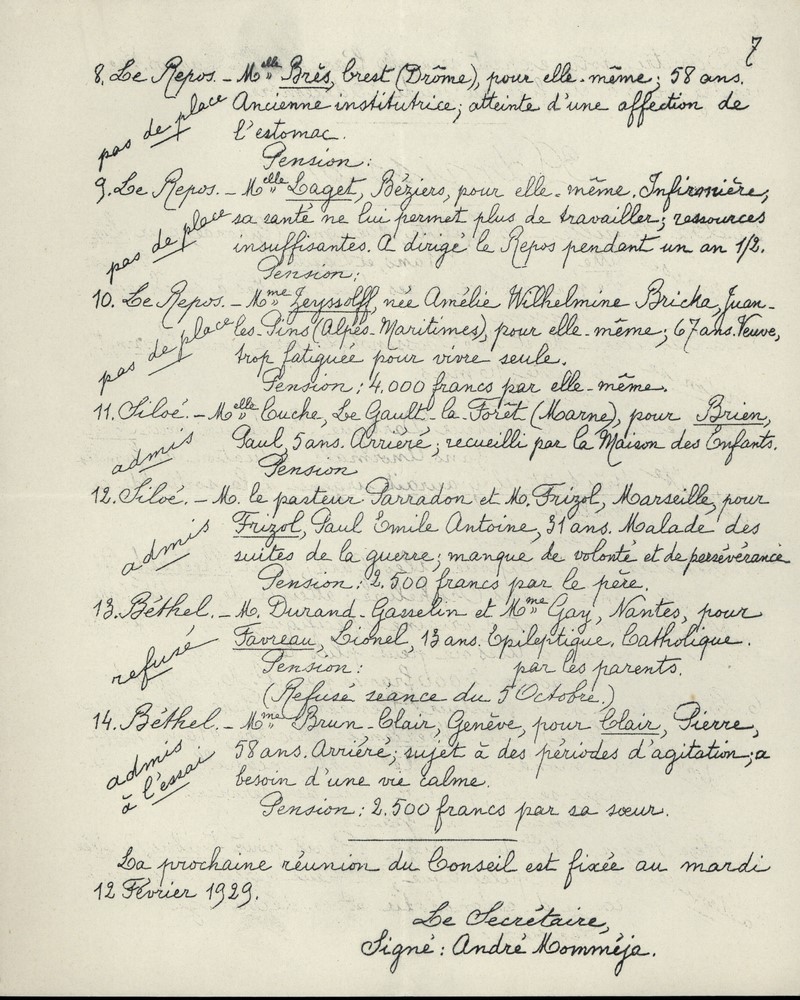 7
8. Le Repos. - Melle Brès, Crest (Drôme), pour elle-même; 58 ans.
pas de place
Ancienne institutrice; atteinte d'une affection de
l'estomac.
Pension:
9. Le Repos. - Melle Laget, Béziers, pour elle-même. Infirmière;
pas de place
sa santé ne lui permet plus de travailler; ressources
insuffisantes. A dirigé le Repos pendant un an 1/2.
Pension:
10. Le Repos. - Mme Zeyssolff, née Amélie Wilhelmine Bricka, Juan-
pas de place
les-Pins (Alpes-Maritimes), pour elle-même; 67 ans. Veuve,
trop fatiguée pour vivre seule.
Pension: 4.000 francs par elle-même.
11. Siloé. - Melle Cuche, Le Gault-la-Forêt (Marne), pour Brien,
admis
Paul, 5 ans. Arriéré; recueilli par la Maison des Enfants.
Pension
12. Siloé. - M. le pasteur Parradon et M. Frizol, Marseille, pour
admis
Frizol, Paul Emile Antoine, 31 ans. Malade des
suites de la guerre; manque de volonté et de persévérance
Pension: 2.500 francs par le père.
13. Béthel. - M. Durand-Gasselin et Mme Gay, Nantes, pour
refusé
Favreau, Lionel, 13 ans. Epileptique. Catholique.
Pension: par les parents.
(Refusé séance du 5 Octobre.)
14. Béthel. - Mme Brun-Clair, Genève, pour Clair, Pierre,
admis
à l'essai
58 ans. Arriéré; sujet à des périodes d'agitation; a
besoin d'une vie calme.
Pension: 2.500 francs par sa sœur.
La prochaine réunion du Conseil est fixée au mardi
12 Février 1929.
Le Secrétaire,
Signé: André Momméja.